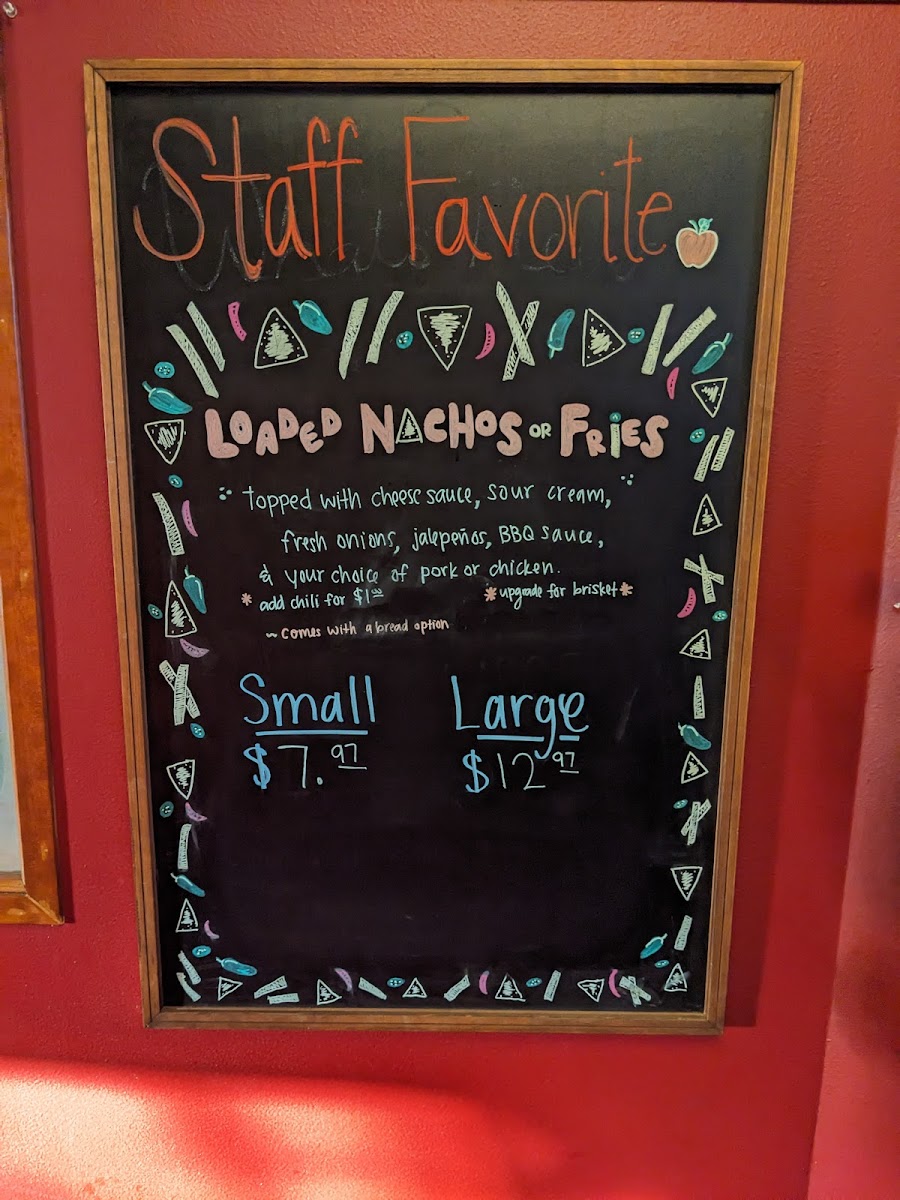 Staff Favorite
LOADED NACHOS OR FRIES
topped with cheese sauce, sour cream,
fresh onions, jalepeños, BBQ sauce,
& your choice of pork or chicken.
* add chili for $1.00 *upgrade for brisket*
~ comes with a bread option
Small Large
$7.97 $12 97